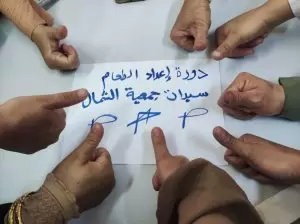 دورة إعداد الطعام
سيدات جمعية الشمال